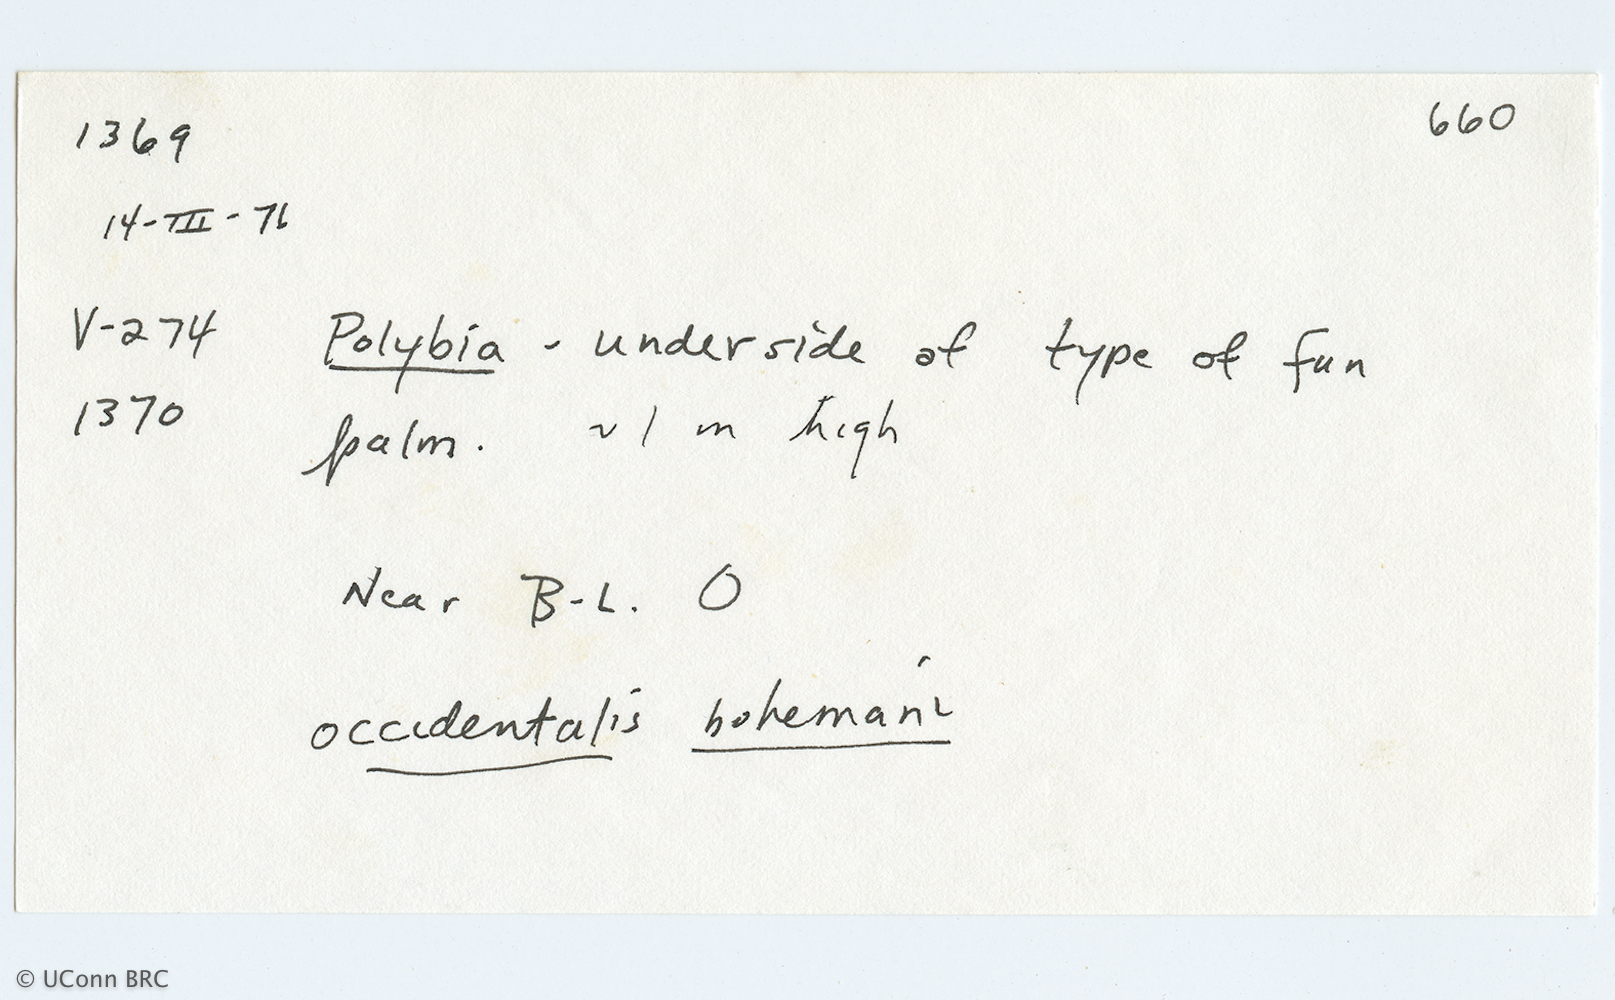 1369 660
14-III-76
V-274 Polybia - underside of type of fan
1370 palm. ~1 m high
Near B-L. O
occidentalis bohemani
© UConn BRC